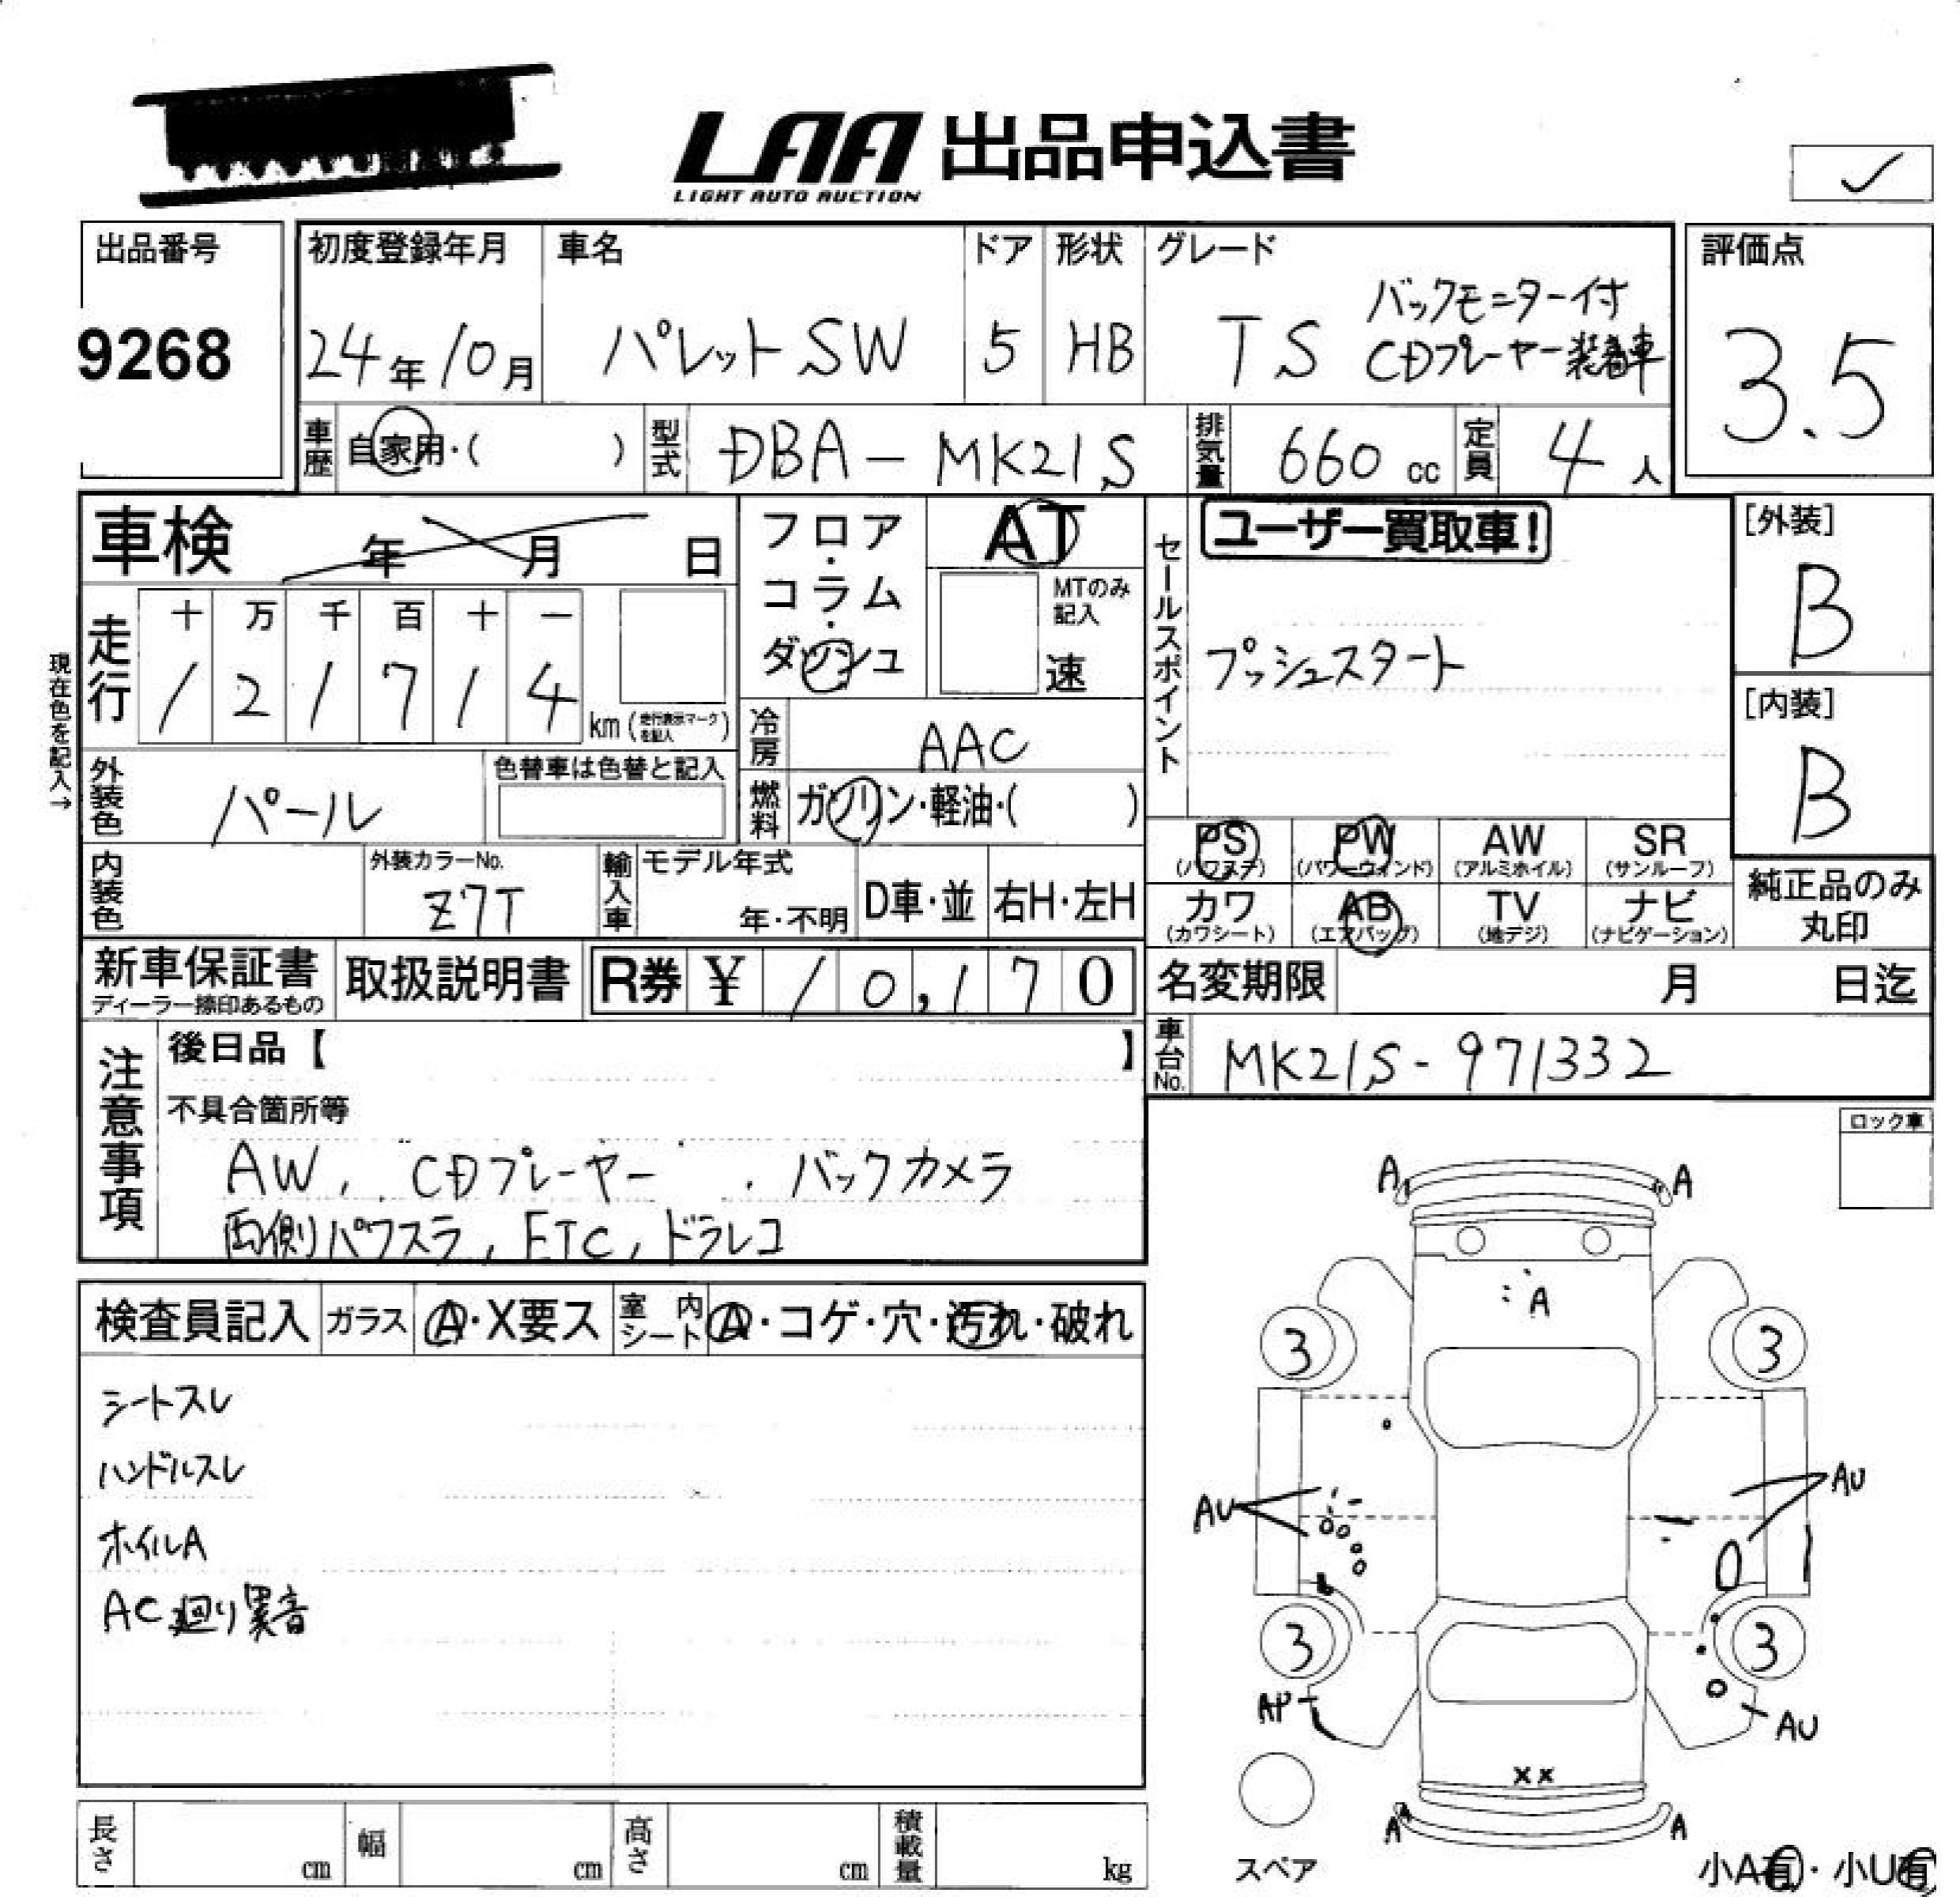 LAA 出品申込書
LIGHT AUTO AUCTION
✓
出品番号
9268
初度登録年月
24年10月
車名
パレットSW
ドア
5
形状
HB
グレード
TS
バックモニター付
CDプレーヤー装着車
評価点
3.5
車歴
自家用・( )
型式
DBA-MK21S
排気量
660 cc
定員
4 人
車検 年 月 日
フロア・コラム・ダッシュ
AT
MTのみ記入
速
セールスポイント
ユーザー買取車!
プッシュスタート
[外装]
B
[内装]
B
現在色を記入→
走行
十 万 千 百 十 一
1 2 1 7 1 4
km (走行表示マークを記入)
冷房
AAC
外装色
パール
色替車は色替と記入
燃料
ガソリン・軽油・( )
PS
(パワステ)
PW
(パワーウィンド)
AW
(アルミホイル)
SR
(サンルーフ)
カワ
(カワシート)
AB
(エアバッグ)
TV
(地デジ)
ナビ
(ナビゲーション)
純正品のみ
丸印
内装色
外装カラーNo.
Z7T
輸入車
モデル年式
年・不明
D車・並
右H・左H
新車保証書
ディーラー捺印あるもの
取扱説明書
R券 ¥ 10,170
名変期限 月 日迄
車台No.
MK21S-971332
注意事項
後日品【 】
不具合箇所等
AW, CDプレーヤー, バックカメラ
両側パワスラ, ETC, ドラレコ
ロック車
検査員記入
ガラス
A・X要ス
室内シート
A・コゲ・穴・汚れ・破れ
シートスレ
ハンドルスレ
ホイルA
AC廻り異音
A A
A
3 3
AU AU
3 3
AP AU
XX
A A
スペア
小A有・小U有
長さ cm
幅 cm
高さ cm
積載量 kg